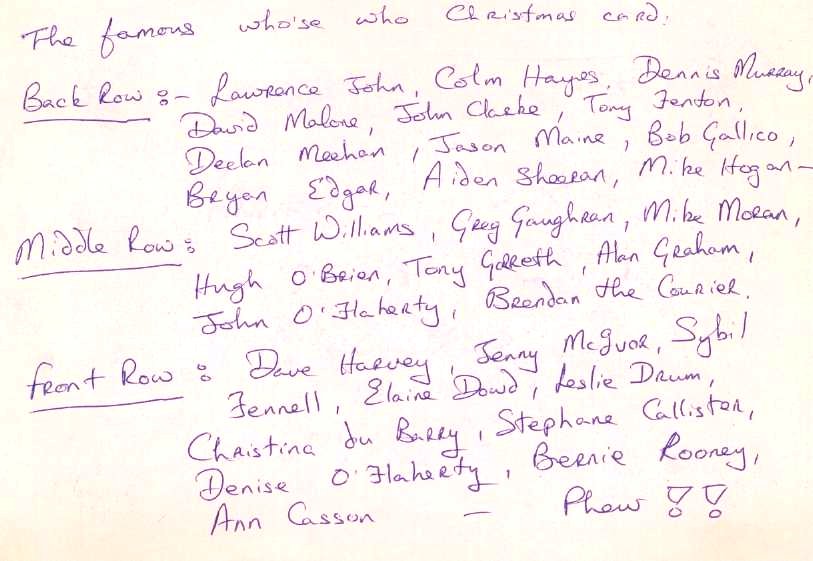 The famous who'se who Christmas card.
Back Row :- Lawrence John, Colm Hayes, Dennis Murray,
David Malone, John Clarke, Tony Fenton,
Declan Meehan, Jason Maine, Bob Gallico,
Bryan Edgar, Aiden Sheeran, Mike Hogan -
Middle Row : Scott Williams, Greg Gaughran, Mike Moran,
Hugh O'Brien, Tony Garreth, Alan Graham,
John O'Flaherty, Brendan the Courier.
Front Row : Dave Harvey, Jenny McIvor, Sybil
Fennell, Elaine Dowd, Leslie Drum,
Christina du Barry, Stephane Callister,
Denise O'Flaherty, Bernie Rooney,
Ann Casson - Phew !!